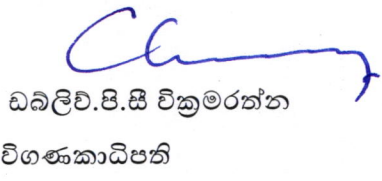 ඩබ්ලිව්.පි.සී වික්‍රමරත්න
විගණකාධිපති